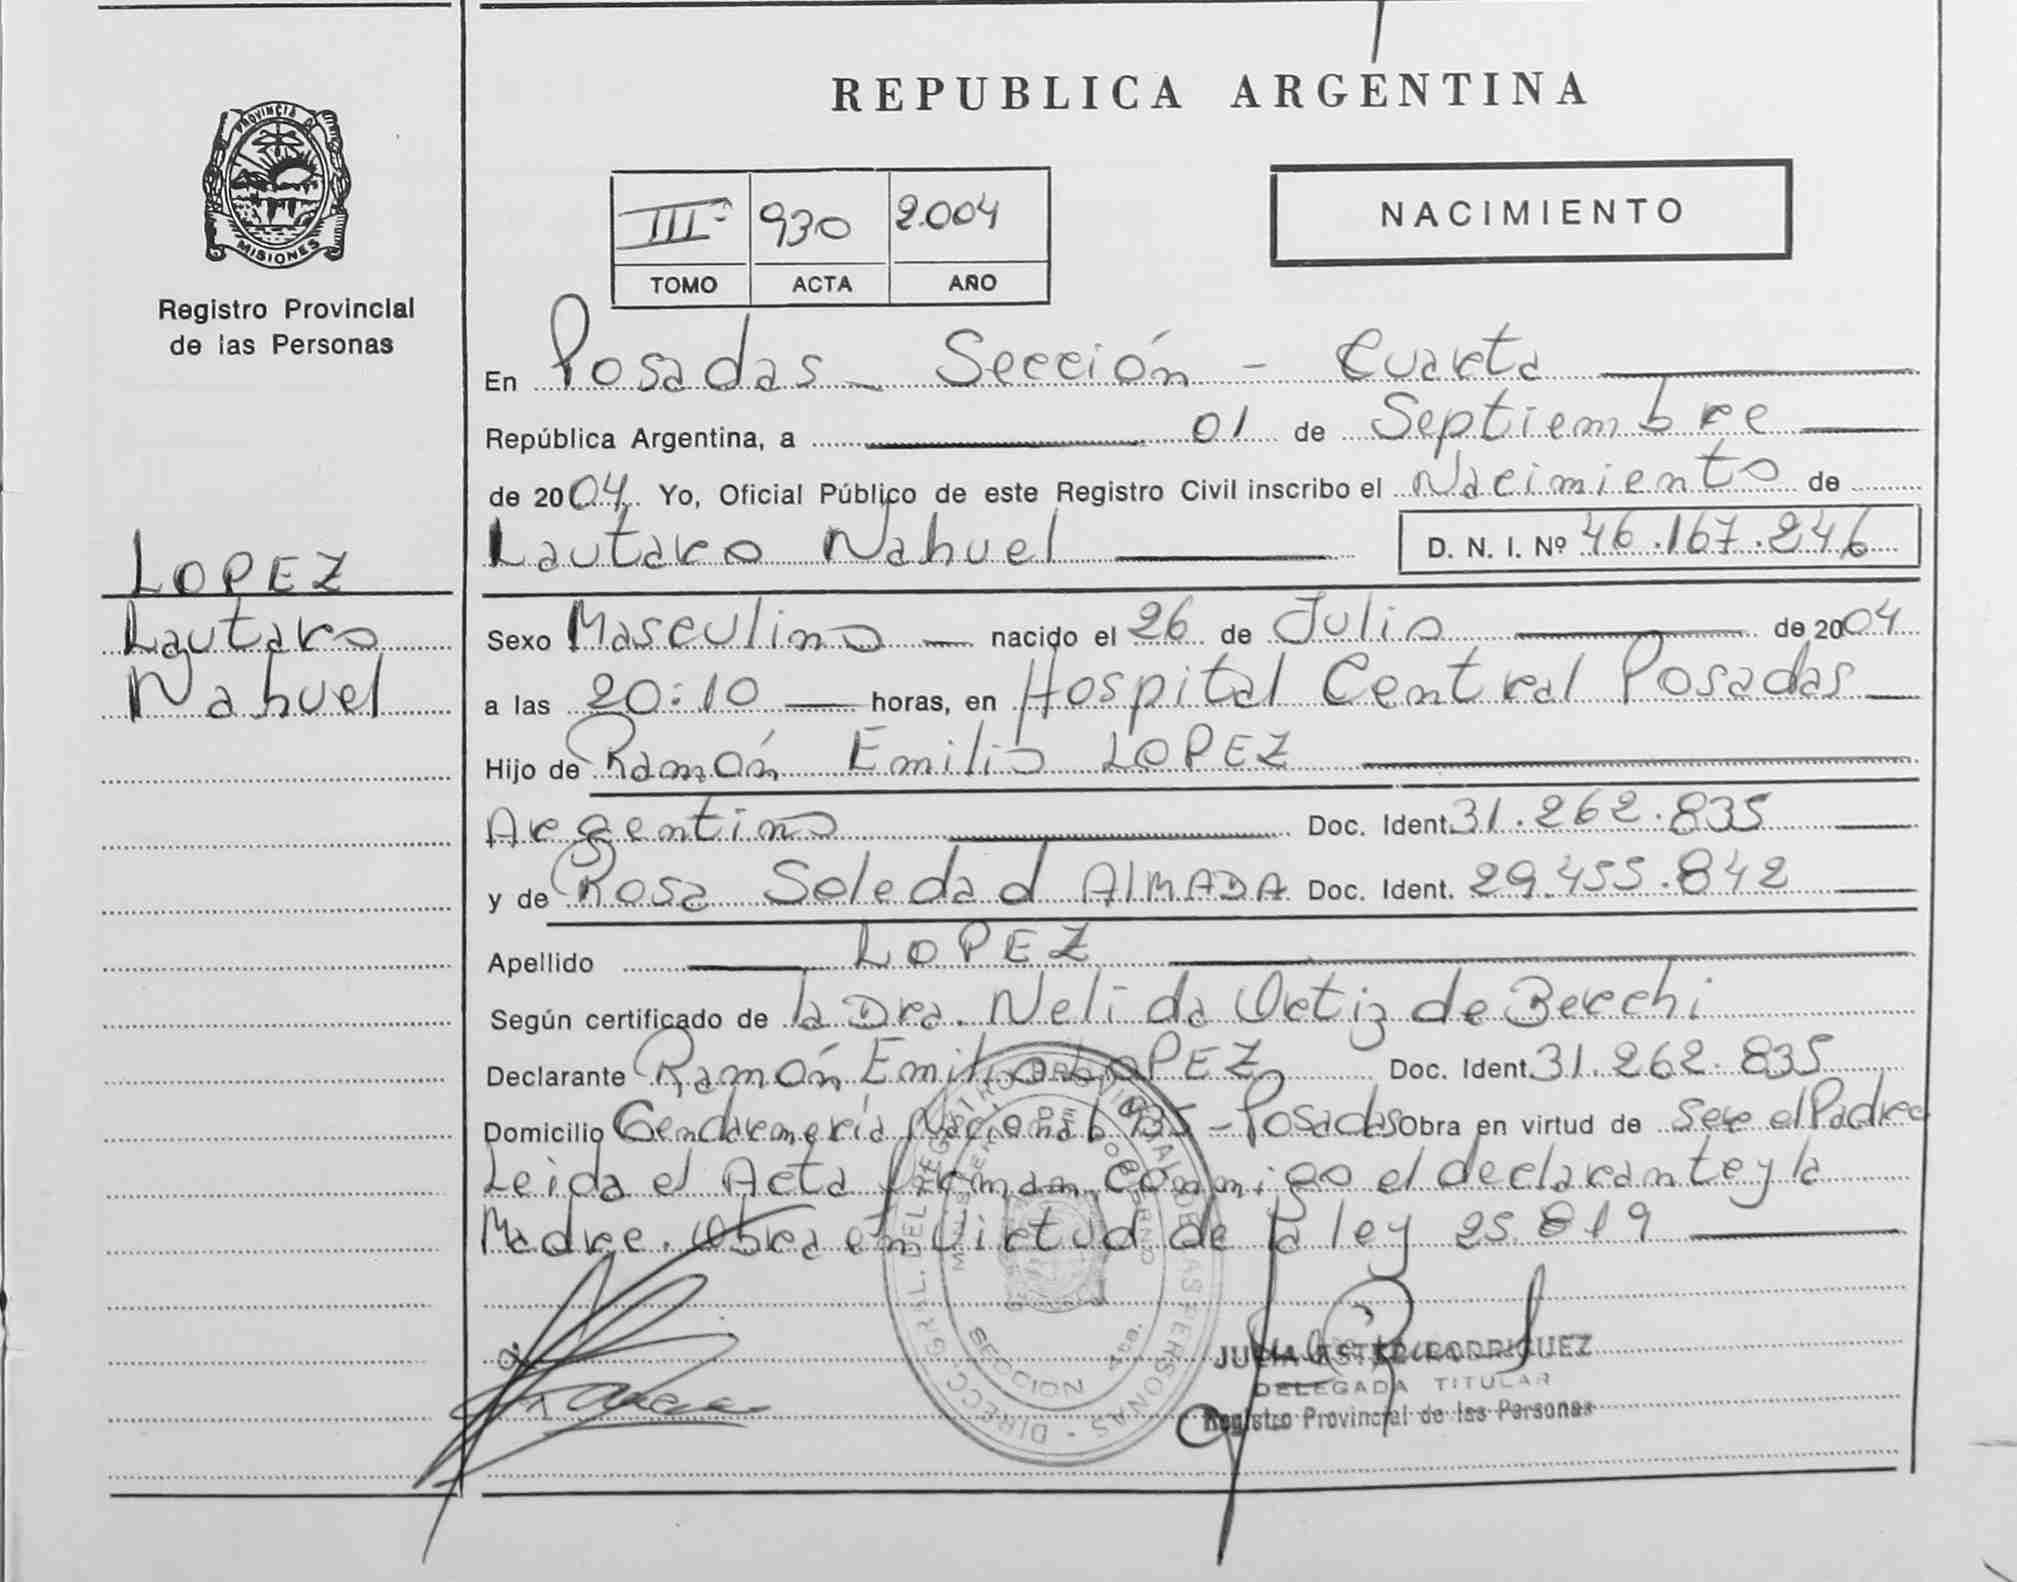 REPUBLICA ARGENTINA
PROVINCIA DE
MISIONES
Registro Provincial
de las Personas
III° 930 2.004
TOMO ACTA AÑO
NACIMIENTO
En Posadas - Sección - Cuarta
República Argentina, a 01 de Septiembre
de 2004 Yo, Oficial Público de este Registro Civil inscribo el Nacimiento de
Lautaro Nahuel D. N. I. Nº 46.167.246
LOPEZ
Lautaro
Nahuel
Sexo Masculino nacido el 26 de Julio de 2004
a las 20:10 horas, en Hospital Central Posadas
Hijo de Ramón Emilio LOPEZ
Argentino Doc. Ident. 31.262.835
y de Rosa Soledad ALMADA Doc. Ident. 29.455.842
Apellido LOPEZ
Según certificado de la Dra. Nelida Ortiz de Berchi
Declarante Ramón Emilio LOPEZ Doc. Ident. 31.262.835
Domicilio Gendarmería Nacional 935 - Posadas Obra en virtud de ser el Padre
Leida el Acta firman conmigo el declarante y la
Madre. Obra en Virtud de la ley 25.819
DIRECC. GRAL. DEL REGISTRO PROVINCIAL DE LAS PERSONAS
MINISTERIO DE GOBIERNO
SECCION 4ta.
JULIA ESTER RODRIGUEZ
DELEGADA TITULAR
Registro Provincial de las Personas